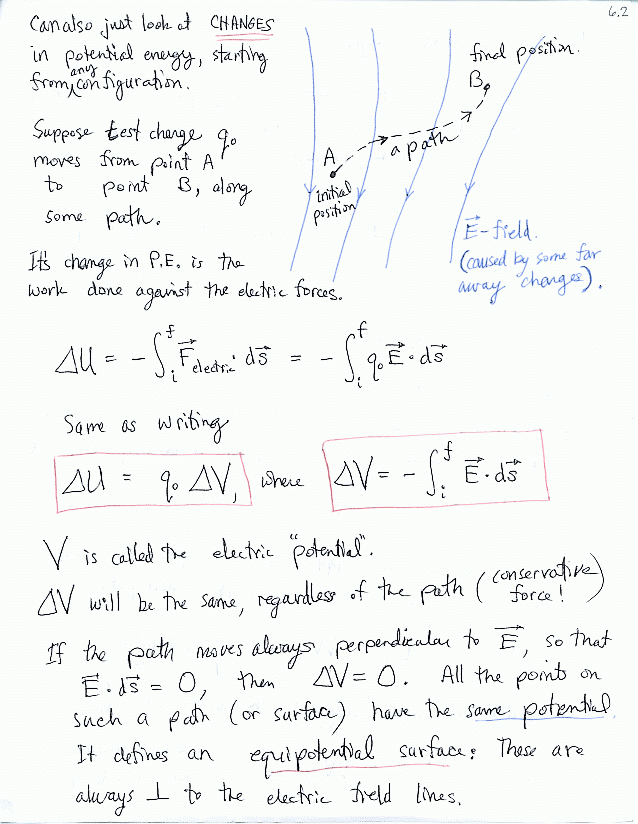 6.2
Can also just look at CHANGES
in potential energy, starting
from any configuration.
Suppose test charge q₀
moves from point A
to point B, along
some path.
Its change in P.E. is the
work done against the electric forces.
final position.
B
a path
A
initial
position
E⃗-field.
(caused by some far
away charges).
ΔU = - ∫ᵢᶠ F⃗electric · ds⃗ = - ∫ᵢᶠ q₀ E⃗ · ds⃗
Same as writing
ΔU = q₀ ΔV, where ΔV = - ∫ᵢᶠ E⃗ · ds⃗
V is called the electric "potential".
ΔV will be the same, regardless of the path (conservative
force!)
If the path moves always perpendicular to E⃗, so that
E⃗ · ds⃗ = 0, then ΔV = 0. All the points on
such a path (or surface) have the same potential.
It defines an equipotential surface. These are
always ⊥ to the electric field lines.